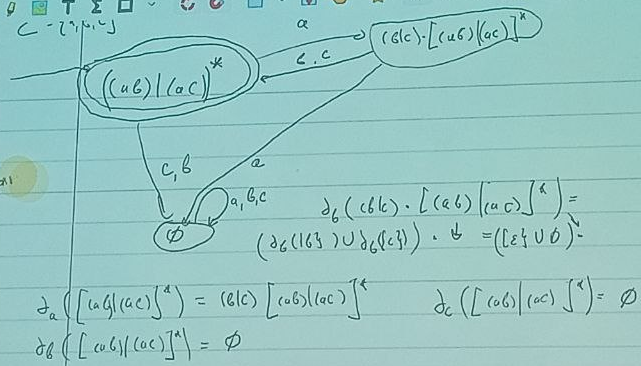 a
(b|c)·[(ab)|(ac)]*
b, c
((ab)|(ac))*
c, b
a
a, b, c
∅
∂b((b|c)·[(ab)|(ac)]*) =
(∂b({b}) ∪ ∂b{c}) · = ({ε} ∪ ∅)·
∂a([(ab)|(ac)]*) = (b|c) [(ab)|(ac)]*
∂c([(ab)|(ac)]*) = ∅
∂b([(ab)|(ac)]*) = ∅